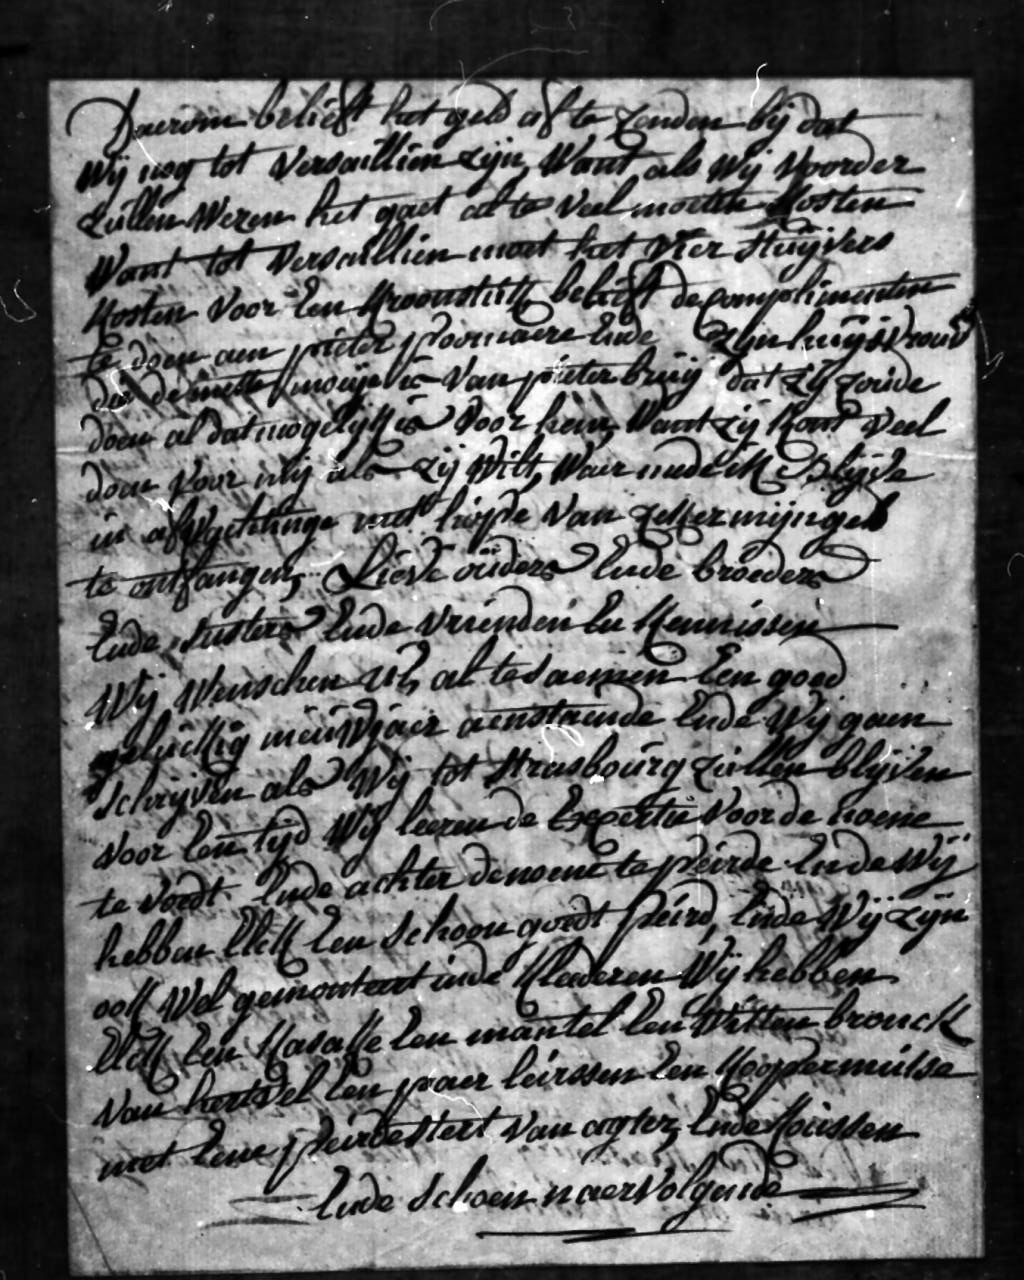 Daerom belieft het geld af te zenden bij dat
Wij nog tot Versaillien zijn Want als Wij Voorder
zullen Wezen het gaet al te veel moeten Kosten
Want tot Versaillien moet het Vier stuijvers
Kosten Voor Een Kroonstuk belieft de complimenten
te doen aen pieter poormaere Ende Zijn huijsvrouw
die van pieter bruij dat zij zoude
doen al dat mogelijk is Voor hem Want zij kont Veel
doen Voor mij als zij Wilt, Waer mede ik Blijve
in afWachtinge met hope van zelfer mijn geld
te ontfangen, Lieve ouders Ende broeders
Ende susters Ende Vrienden En Kennissen
Wij Wenschen UL al te saemen Een goed
geluckig nieuWjaer aenstaende Ende Wij gaen
schrijven als Wij tot Strasbourg zullen blijven
Voor Een tijd Wij leeren de Exsertie Voor de noene
te Voedt Ende achter de noene te peirde Ende Wij
hebben Elck Een schoon goedt peird, Ende Wij zijn
ook Wel gemonteert inde Klederen Wij hebben
Elck Een Kasakke Een mantel Een Witten brouck
Van hertsVel Een paer leirssen Een Kopermutse
met Eene peirdestert Van agter, Ende Koussen
Ende schoen naerVolgende